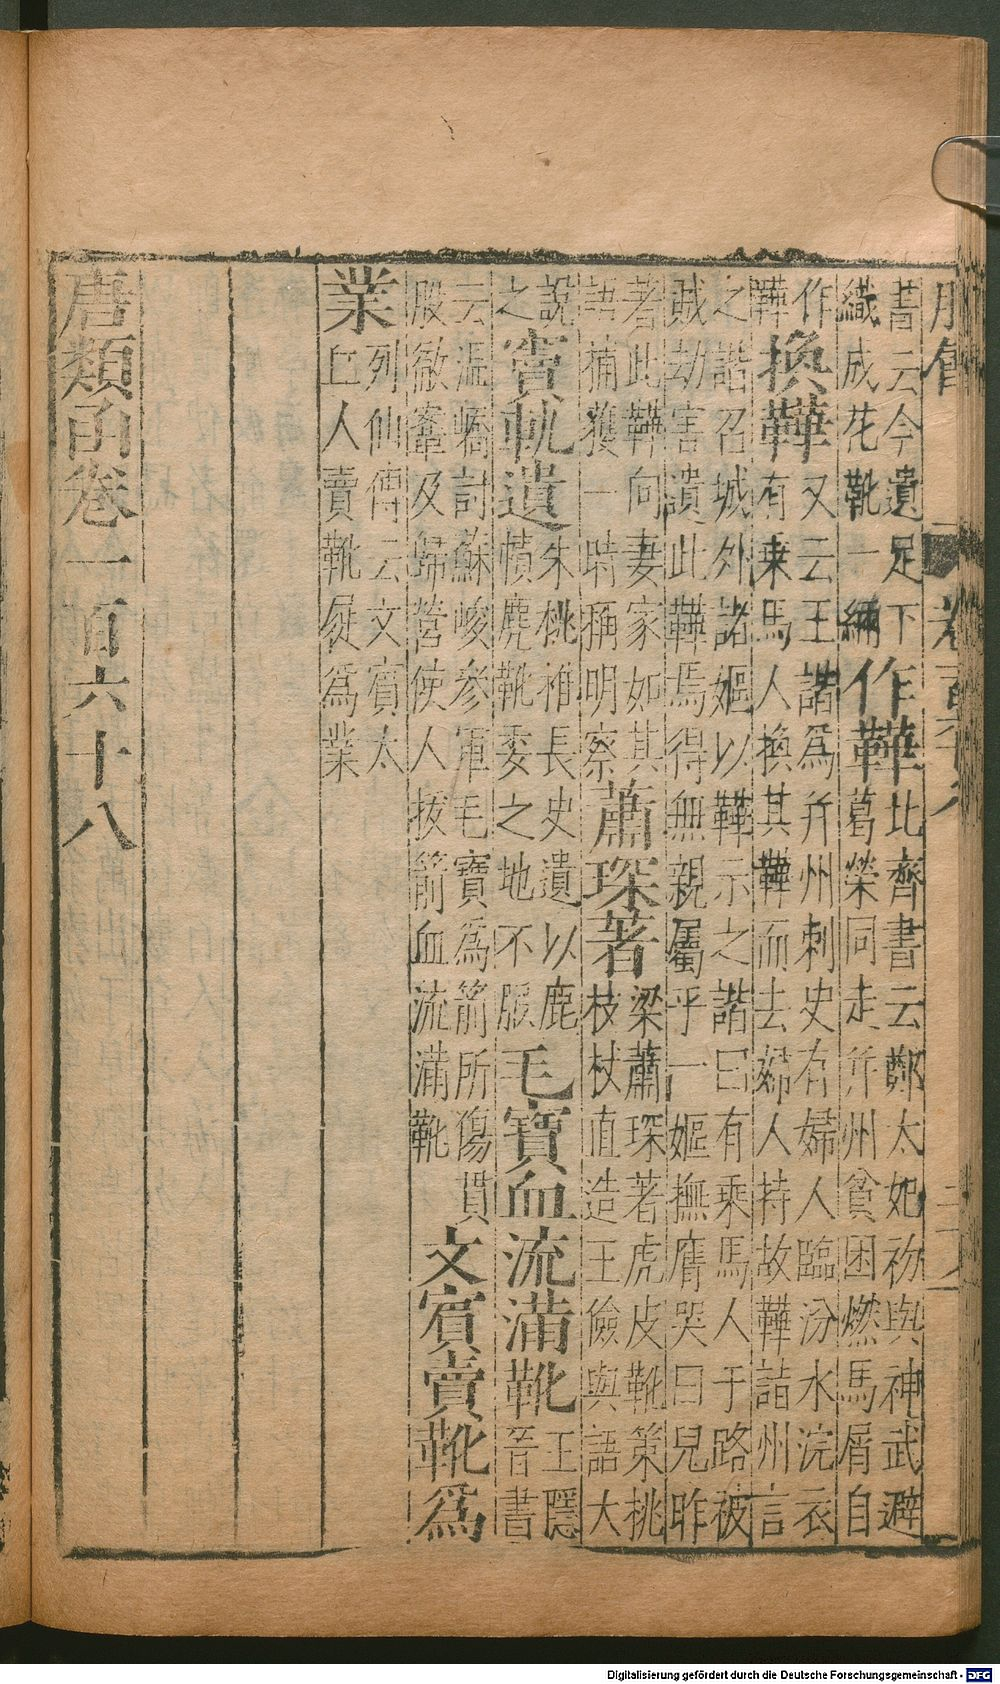 書云今遺足下
織成花靴一緉
作鞾
比齊書云鄭太妃初與神武避
葛榮同走并州貧困燃馬屑自
作又云王諧爲并州刺史有婦人臨汾水浣衣
鞾
換鞾
有乗馬人換其鞾而去婦人持故鞾詣州言
之諧召城外諸嫗以鞾示之諧曰有乗馬人于路被
賊劫害遺此鞾焉得無親屬乎一嫗撫膺哭曰兒昨
著此鞾向妻家如其
語捕獲一時稱明察
蕭琛著
梁蕭琛著虎皮靴策桃
枝杖直造王儉與語大
說
之
竇軌遺
朱桃椎長史遺以鹿
幘麂靴委之地不服
毛寶血流滿靴
王隱
晉書
云温嶠討蘇峻參軍毛寶爲箭所傷貫
股徹鞌及歸營使人拔箭血流滿靴
文賓賣靴爲
業
列仙傳云文賓太
丘人賣靴屐爲業
唐類函卷一百六十八
Digitalisierung gefördert durch die Deutsche Forschungsgemeinschaft - DFG